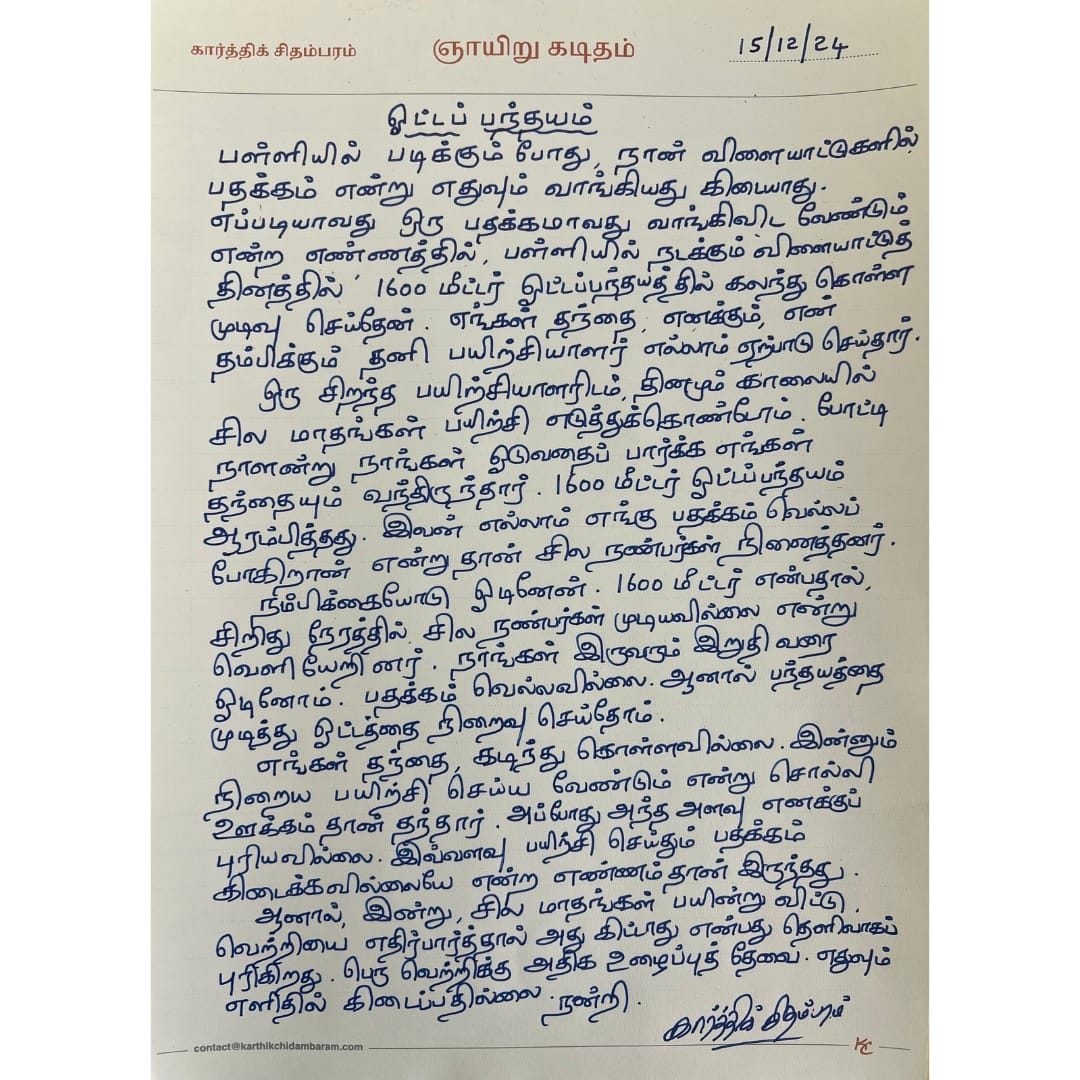 கார்த்திக் சிதம்பரம்
ஞாயிறு கடிதம்
15/12/24
ஓட்டப் பந்தயம்
பள்ளியில் படிக்கும் போது, நான் விளையாட்டுகளில்
பதக்கம் என்று எதுவும் வாங்கியது கிடையாது.
எப்படியாவது ஒரு பதக்கமாவது வாங்கிவிட வேண்டும்
என்ற எண்ணத்தில், பள்ளியில் நடக்கும் விளையாட்டுத்
தினத்தில் 1600 மீட்டர் ஓட்டப்பந்தயத்தில் கலந்து கொள்ள
முடிவு செய்தேன். எங்கள் தந்தை, எனக்கும், என்
தம்பிக்கும் தனி பயிற்சியாளர் எல்லாம் ஏற்பாடு செய்தார்.
ஒரு சிறந்த பயிற்சியாளரிடம், தினமும் காலையில்
சில மாதங்கள் பயிற்சி எடுத்துக்கொண்டோம். போட்டி
நாளன்று நாங்கள் ஓடுவதைப் பார்க்க எங்கள்
தந்தையும் வந்திருந்தார். 1600 மீட்டர் ஓட்டப்பந்தயம்
ஆரம்பித்தது. இவன் எல்லாம் எங்கு பதக்கம் வெல்லப்
போகிறான் என்று தான் சில நண்பர்கள் நினைத்தனர்.
நம்பிக்கையோடு ஓடினேன். 1600 மீட்டர் என்பதால்,
சிறிது நேரத்தில், சில நண்பர்கள் முடியவில்லை என்று
வெளியேறினர். நாங்கள் இருவரும் இறுதி வரை
ஓடினோம். பதக்கம் வெல்லவில்லை. ஆனால் பந்தயத்தை
முடித்து ஓட்டத்தை நிறைவு செய்தோம்.
எங்கள் தந்தை, கடிந்து கொள்ளவில்லை. இன்னும்
நிறைய பயிற்சி செய்ய வேண்டும் என்று சொல்லி
ஊக்கம் தான் தந்தார். அப்போது அந்த அளவு எனக்குப்
புரியவில்லை. இவ்வளவு பயிற்சி செய்தும் பதக்கம்
கிடைக்கவில்லையே என்ற எண்ணம் தான் இருந்தது.
ஆனால், இன்று, சில மாதங்கள் பயின்று விட்டு,
வெற்றியை எதிர்பார்த்தால் அது கிட்டாது என்பது தெளிவாகப்
புரிகிறது. பெரு வெற்றிக்கு அதிக உழைப்புத் தேவை. எதுவும்
எளிதில் கிடைப்பதில்லை. நன்றி.
கார்த்திக் சிதம்பரம்
contact@karthikchidambaram.com
KC